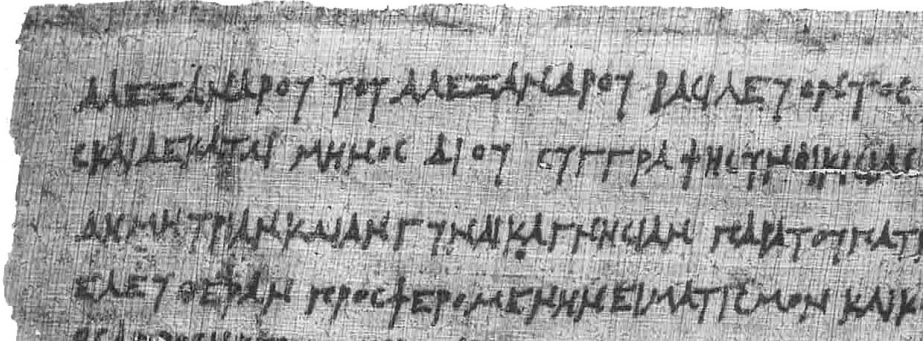 ΑΛΕΞΑΝΔΡΟΥ ΤΟΥ ΑΛΕΞΑΝΔΡΟΥ ΒΑΣΙΛΕΥΟΝΤΟΣ
ΣΚΑΙΔΕΚΑΤΩΙ ΜΗΝΟΣ ΔΙΟΥ ΣΥΓΓΡΑΦΗ ΣΥΝΟΙΚΙΣΙΑΣ
ΔΗΜΗΤΡΙΑΝ ΚΩΙΑΝ ΓΥΝΑΙΚΑ ΓΝΗΣΙΑΝ ΠΑΡΑ ΤΟΥ ΠΑΤ
ΕΛΕΥΘΕΡΑΝ ΠΡΟΣΦΕΡΟΜΕΝΗΝ ΕΙΜΑΤΙΣΜΟΝ ΚΑΙ Κ